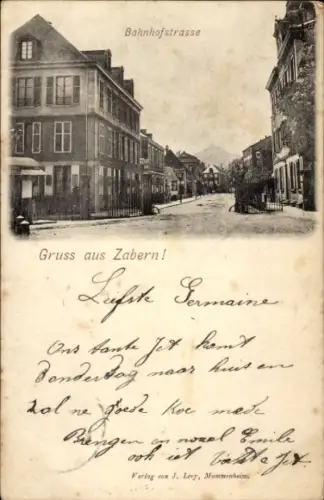 Bahnhofstrasse
Gruss aus Zabern!
Liefste Germaine
Ons tante Jet komt
Donderdag naar huis en
zal ne goede Koe mede
brengen en nonel Emile
ook uit Tante Jet.
Verlag von J. Levy, Mommenheim.